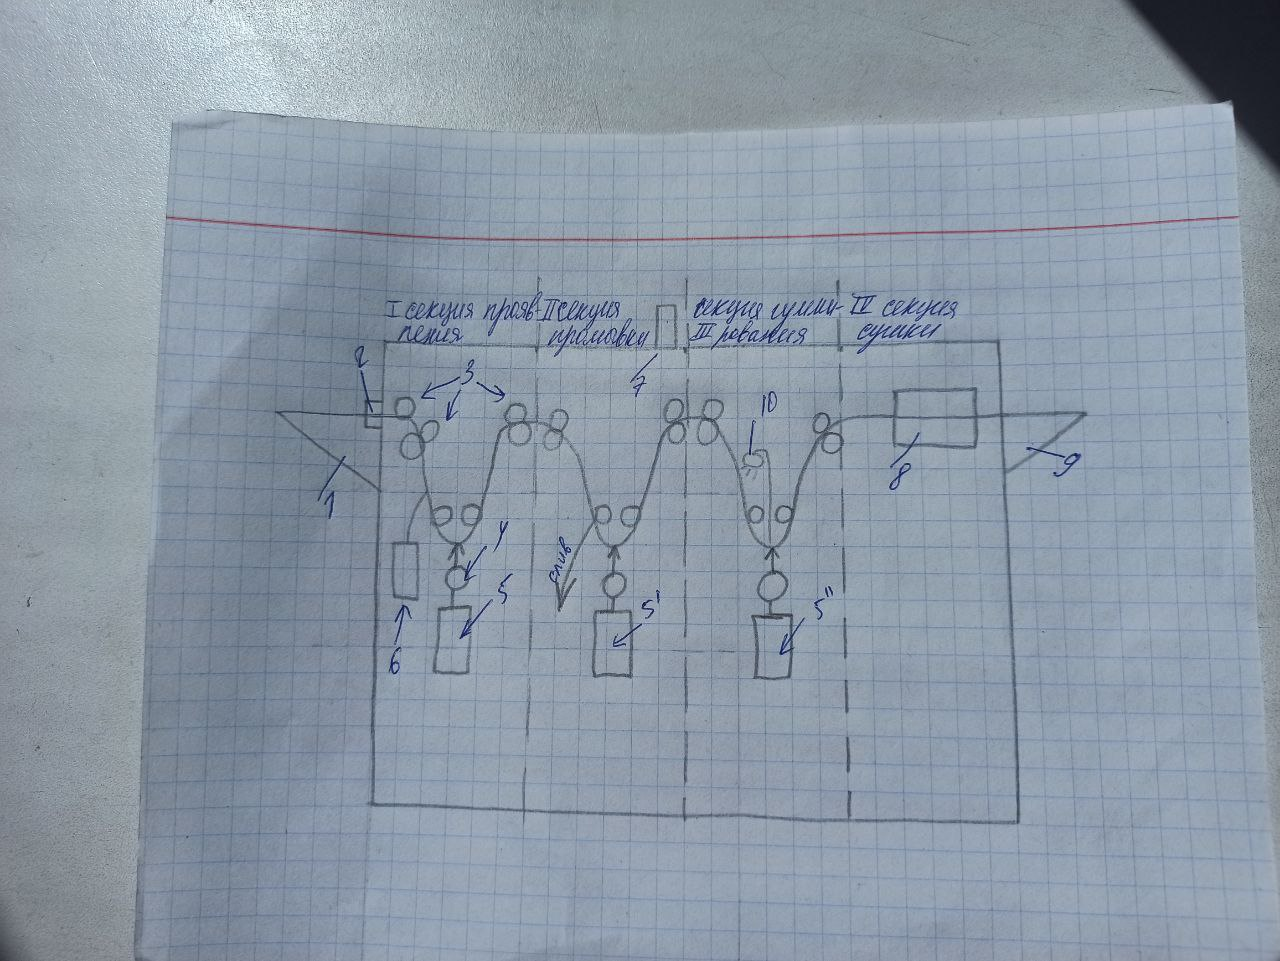 I секция прояв-
ления
II секция
промывки
секция гумми-
III рования
IV секция
сушки
2
3
7
10
1
8
9
4
слив
5
5'
5"
6